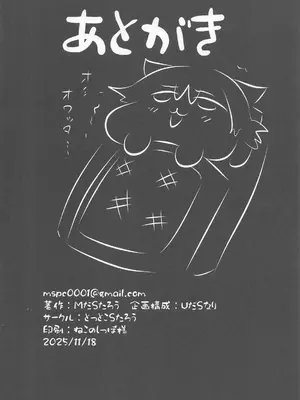 あとがき
オ〜
イ〜
オワッタ…
mspc0001@gmail.com
著作：MだSたろう　企画構成：UだSなり
サークル：とっとこSたろう
印刷：ねこのしっぽ様
2025/11/18